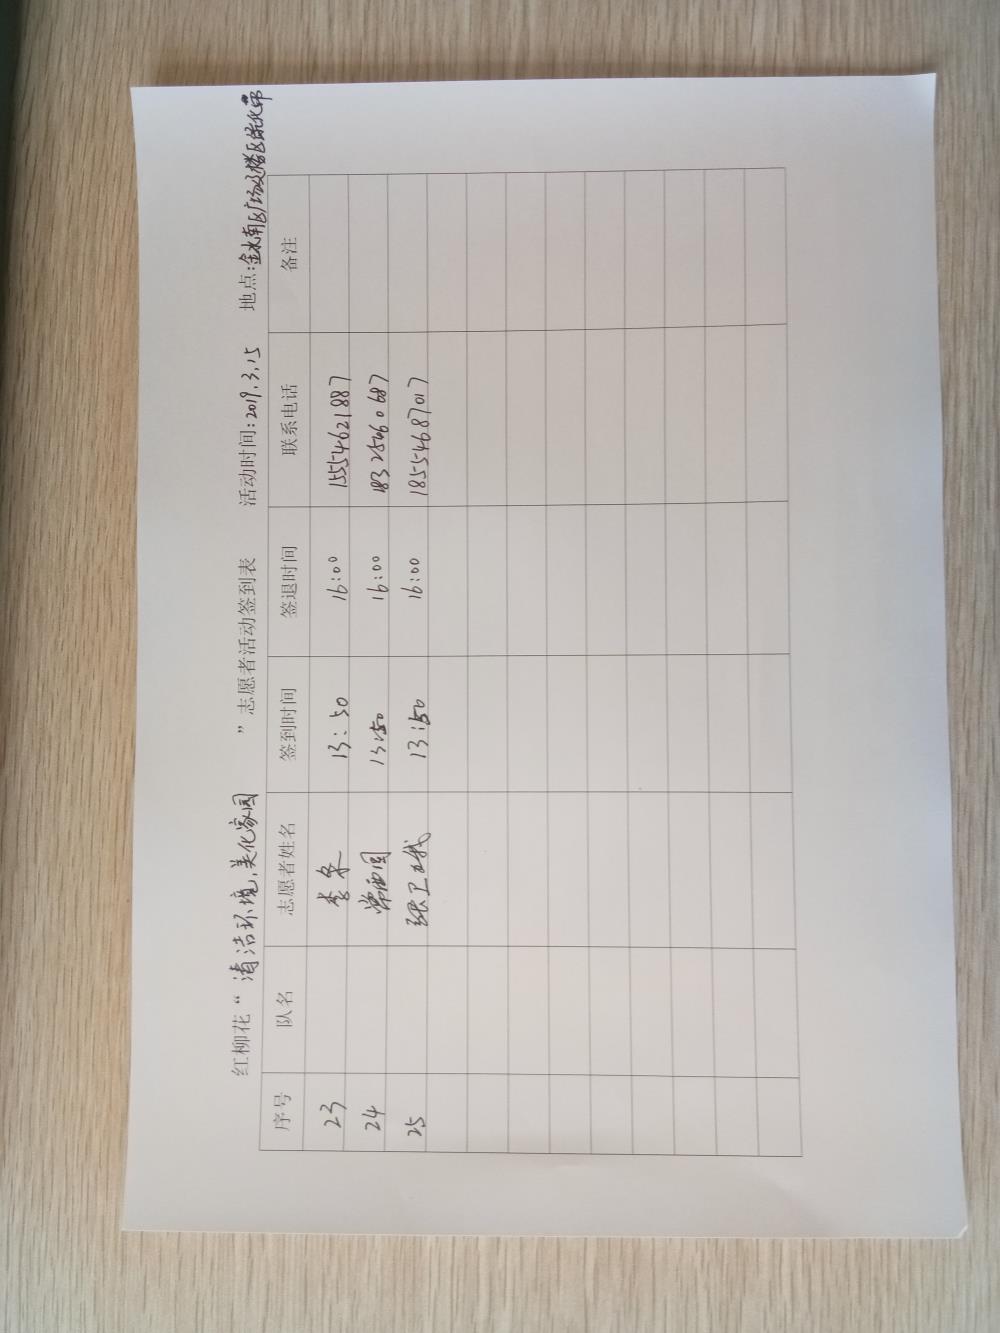 红柳花“清洁环境,美化家园”志愿者活动签到表 活动时间:2019.3.15 地点:金水南区广场及楼区绿化带
序号 队名 志愿者姓名 签到时间 签退时间 联系电话 备注
23 李荣 13:50 16:00 15554621887
24 常西国 13:50 16:00 18325060687
25 张卫战 13:50 16:00 18554687017